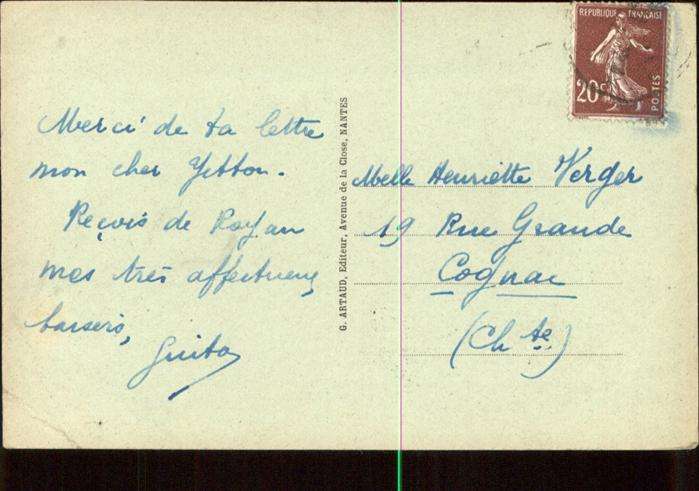 Merci de ta lettre
mon cher
Reçois de Royan
mes très affectueux
baisers,
G. ARTAUD, Editeur, Avenue de la Close, NANTES
REPUBLIQUE FRANÇAISE
20c
POSTES
Melle Henriette Verger
19 Rue Grande
Cognac
(Ch te)